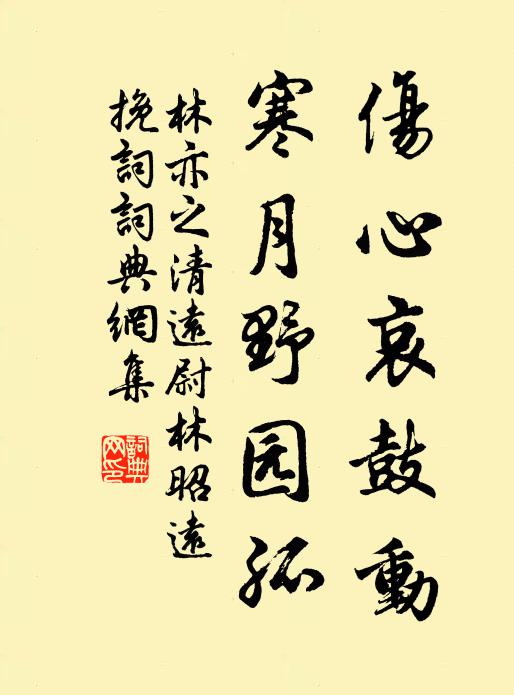 傷心哀鼓動
寒月野园孤
林亦之清遠尉林昭遠
挽詞詞典網集
詞典网印